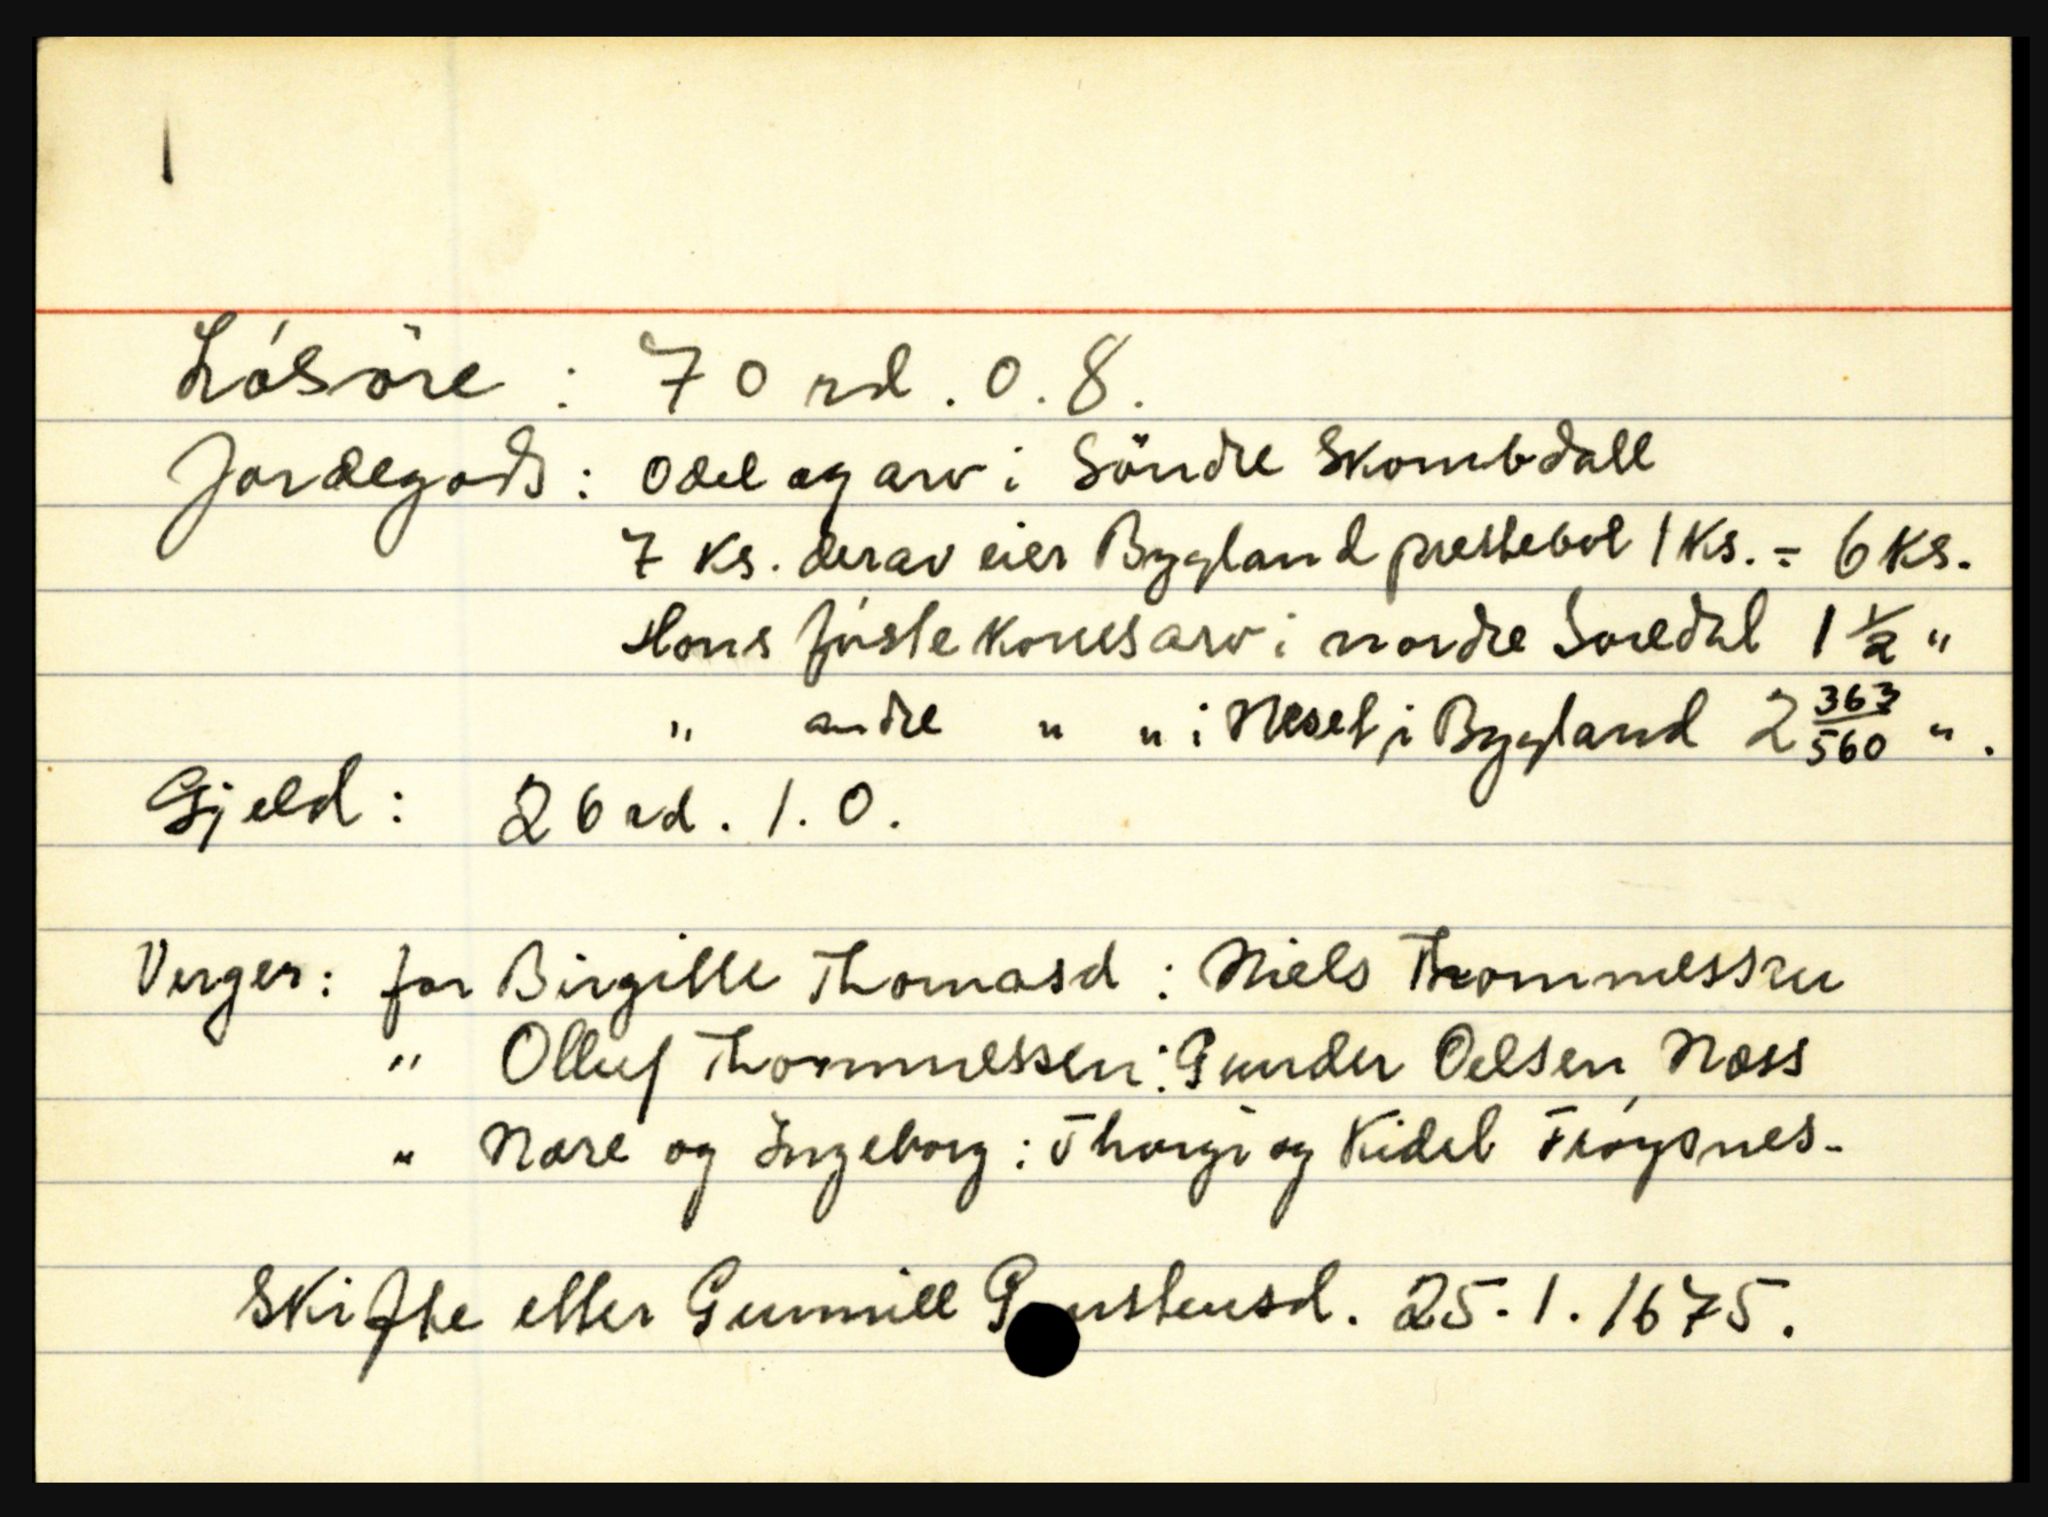 Lösöre : 70 rd. 0. 8.
Jordegods : Odel og arv i Söndre Skombdall
7 Ks. derav eier Bygland prestebol 1 Ks. = 6 Ks.
Hans föste Konesarv i nordre Soredal 1 1/2 "
" andre " " i Neset i Bygland 2 363/560 " .
Gjeld : 26 rd. 1. 0.
Verger : for Birgitte Thomasd : Niels Thommessen
" Olluf Thommessen : Gunder Oelsen Næss
" Nære og Ingeborg : Thorgi og Kidel Fröysnes -
Skifte etter Gunnill 25. 1. 1675.